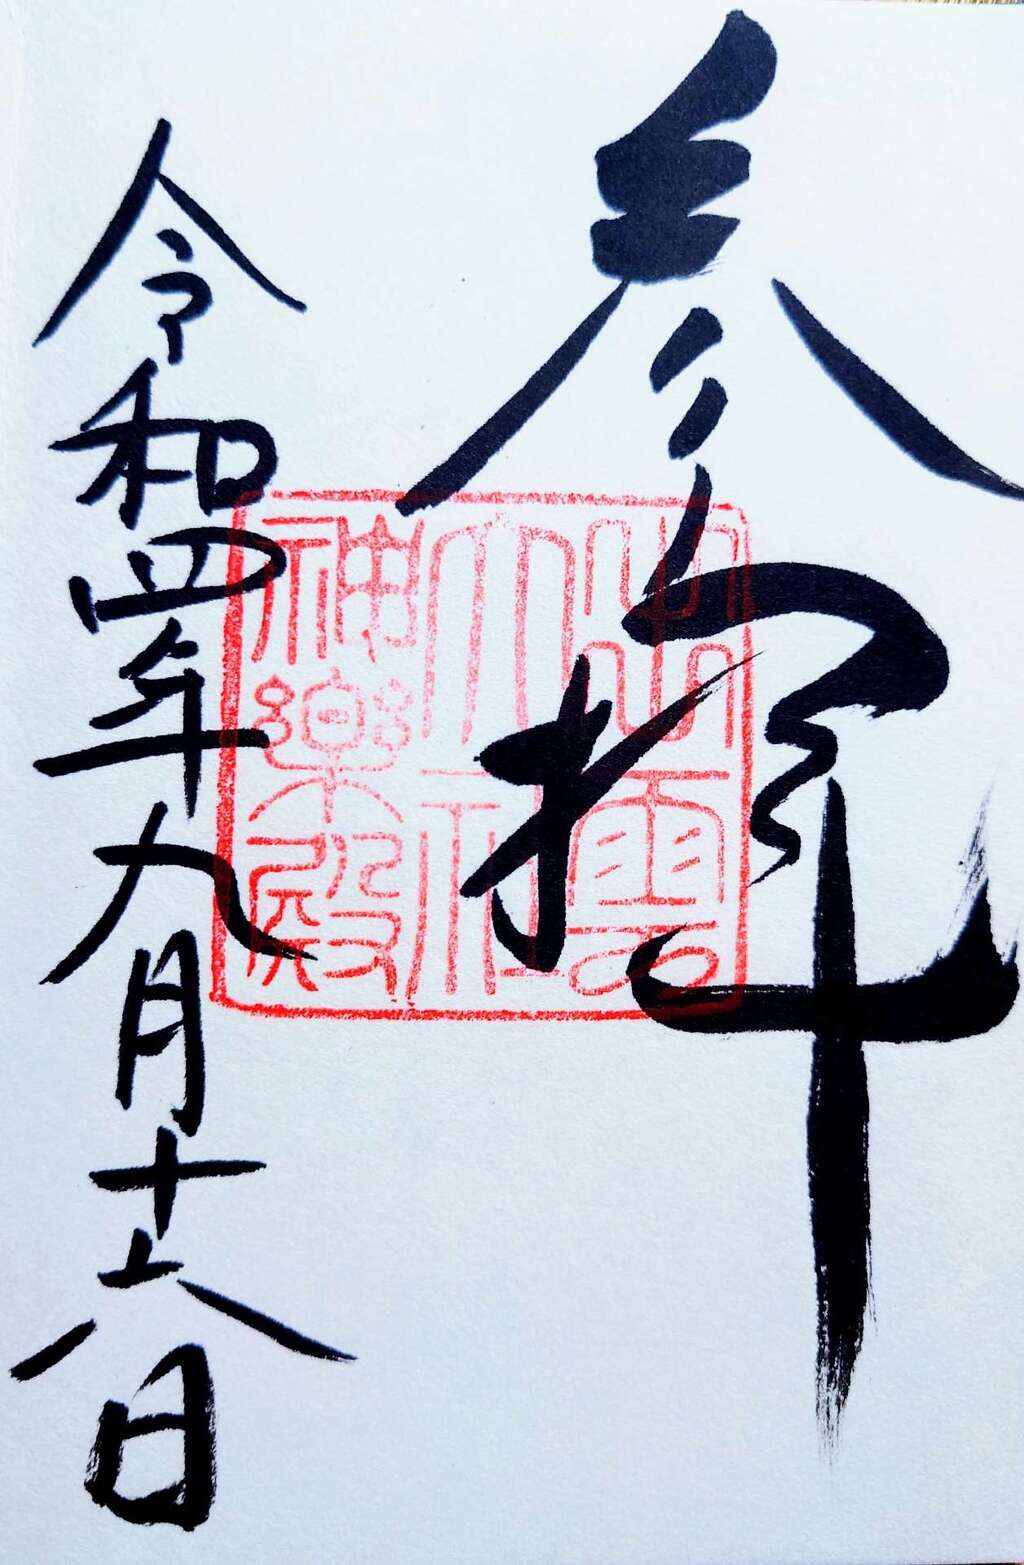 参拝
出雲
大社
神楽殿
令和四年九月十六日